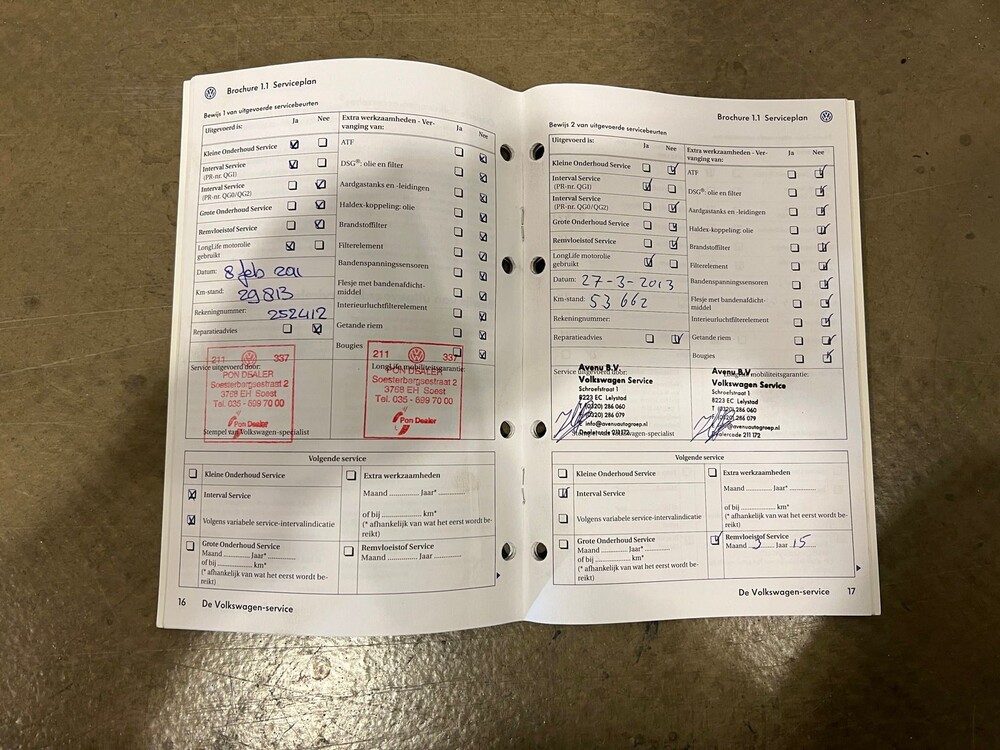 Brochure 1.1 Serviceplan
Bewijs 1 van uitgevoerde servicebeurten
Uitgevoerd is: Ja Nee
Kleine Onderhoud Service
Interval Service
(PR-nr. QG1)
Interval Service
(PR-nr. QG0/QG2)
Grote Onderhoud Service
Remvloeistof Service
LongLife motorolie
gebruikt
Datum: 8 feb 201
Km-stand: 29813
Rekeningnummer: 252412
Reparatieadvies
Extra werkzaamheden - Ver-
vanging van: Ja Nee
ATF
DSG®: olie en filter
Aardgastanks en -leidingen
Haldex-koppeling: olie
Brandstoffilter
Filterelement
Bandenspanningssensoren
Flesje met bandenafdicht-
middel
Interieurluchtfilterelement
Getande riem
Bougies
Service uitgevoerd door:
211 337
PON DEALER
Soesterbergsestraat 2
3768 EH Soest
Tel. 035 - 699 70 00
Pon Dealer
Stempel van Volkswagen-specialist
LongLife mobiliteitsgarantie:
211 337
PON DEALER
Soesterbergsestraat 2
3768 EH Soest
Tel. 035 - 699 70 00
Pon Dealer
Volgende service
Kleine Onderhoud Service
Interval Service
Volgens variabele service-intervalindicatie
Grote Onderhoud Service
Maand .......... Jaar* ..........
of bij .......... km*
(* afhankelijk van wat het eerst wordt be-
reikt)
Extra werkzaamheden
Maand .......... Jaar* ..........
of bij .......... km*
(* afhankelijk van wat het eerst wordt be-
reikt)
Remvloeistof Service
Maand .......... Jaar ..........
16 De Volkswagen-service
Brochure 1.1 Serviceplan
Bewijs 2 van uitgevoerde servicebeurten
Uitgevoerd is: Ja Nee
Kleine Onderhoud Service
Interval Service
(PR-nr. QG1)
Interval Service
(PR-nr. QG0/QG2)
Grote Onderhoud Service
Remvloeistof Service
LongLife motorolie
gebruikt
Datum: 27-3-2013
Km-stand: 53 662
Rekeningnummer:
Reparatieadvies
Extra werkzaamheden - Ver-
vanging van: Ja Nee
ATF
DSG®: olie en filter
Aardgastanks en -leidingen
Haldex-koppeling: olie
Brandstoffilter
Filterelement
Bandenspanningssensoren
Flesje met bandenafdicht-
middel
Interieurluchtfilterelement
Getande riem
Bougies
Service uitgevoerd door:
Avenu B.V.
Volkswagen Service
Schroefstraat 1
8223 EC Lelystad
T (0320) 286 060
(0320) 286 079
info@avenuautogroep.nl
Dealercode 211 172
Stempel van Volkswagen-specialist
LongLife mobiliteitsgarantie:
Avenu B.V.
Volkswagen Service
Schroefstraat 1
8223 EC Lelystad
T (0320) 286 060
(0320) 286 079
@avenuautogroep.nl
Dealercode 211 172
Volgende service
Kleine Onderhoud Service
Interval Service
Volgens variabele service-intervalindicatie
Grote Onderhoud Service
Maand .......... Jaar* ..........
of bij .......... km*
(* afhankelijk van wat het eerst wordt be-
reikt)
Extra werkzaamheden
Maand .......... Jaar* ..........
of bij .......... km*
(* afhankelijk van wat het eerst wordt be-
reikt)
Remvloeistof Service
Maand 3 Jaar 15
De Volkswagen-service 17